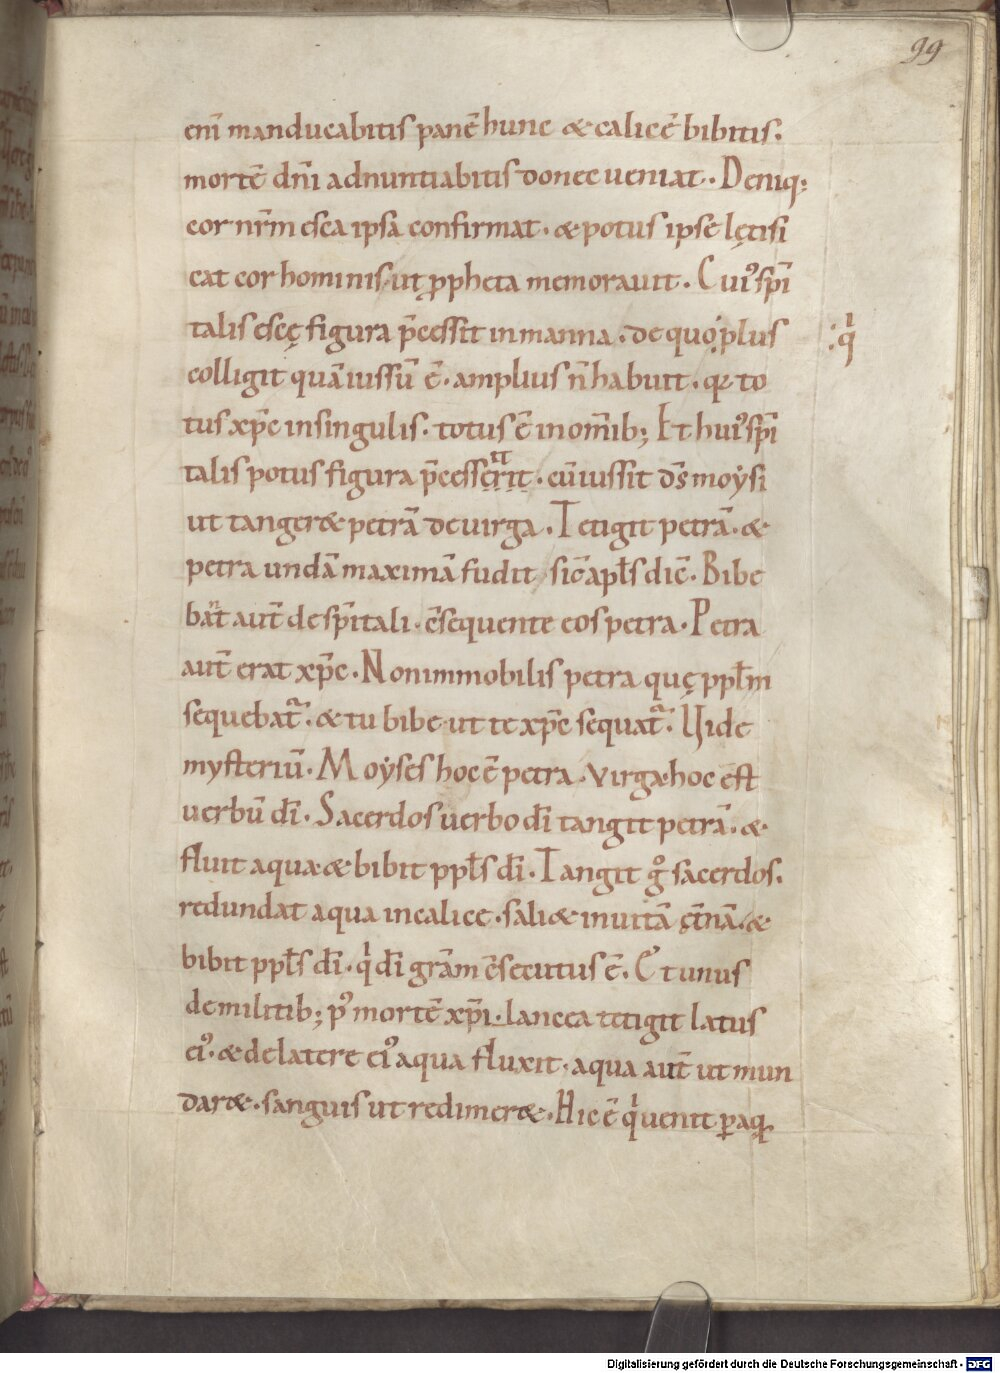 99
eni͂ manducabitis pane͂ hunc & calice͂ bibitis.
morte͂ dn͂i adnuntiabitis donec ueniat. Deniq;
cor nr͂m esca ipsa confirmat. & potus ipse lętifi
cat cor hominis ut ꝓpheta memorauit. Cuiꝰ spi͂
talis escę figura p͂cessit in manna. de quo plus
:qͥ
colligit qua͂ iussu͂ e͂. amplius n͂ habuit. qꝛ to
tus xp͂c in singulis. totus e͂ in om͂ib; Et huiꝰ spi͂
talis potus figura p͂cesserit. cu͂ iussit ds͂ moẏsi
et
ut tanger& petra͂ de uirga. Tetigit petra͂. &
petra unda͂ maxima͂ fudit sic͂ apl͂s dic͂. Bibe
bant aut͂ de spi͂tali. c͂sequente eos petra. Petra
aut͂ erat xp͂c. Non immobilis petra quę ppl͂m
sequebat᷑. & tu bibe ut te xp͂c sequat᷑. Vide
mysteriu͂. Moẏses hoc e͂ petra. virga hoc est
uerbu͂ di͂. Sacerdos uerbo di͂ tangit petra͂. &
fluit aqua & bibit ppl͂s di͂. Tangit gͦ sacerdos.
redundat aqua in calice. sali& in uita͂ ęt͂na͂. &
bibit ppl͂s di͂. qͥ di͂ gra͂m c͂secutus e͂. Et unus
de militib; pꝰ morte͂ xp͂i. lancea tetigit latus
eiꝰ. & de latere eiꝰ aqua fluxit. aqua aut͂ ut mun
dar&. sanguis ut redimer&. Hic e͂ qͥ uenit ꝑ aqꝫ